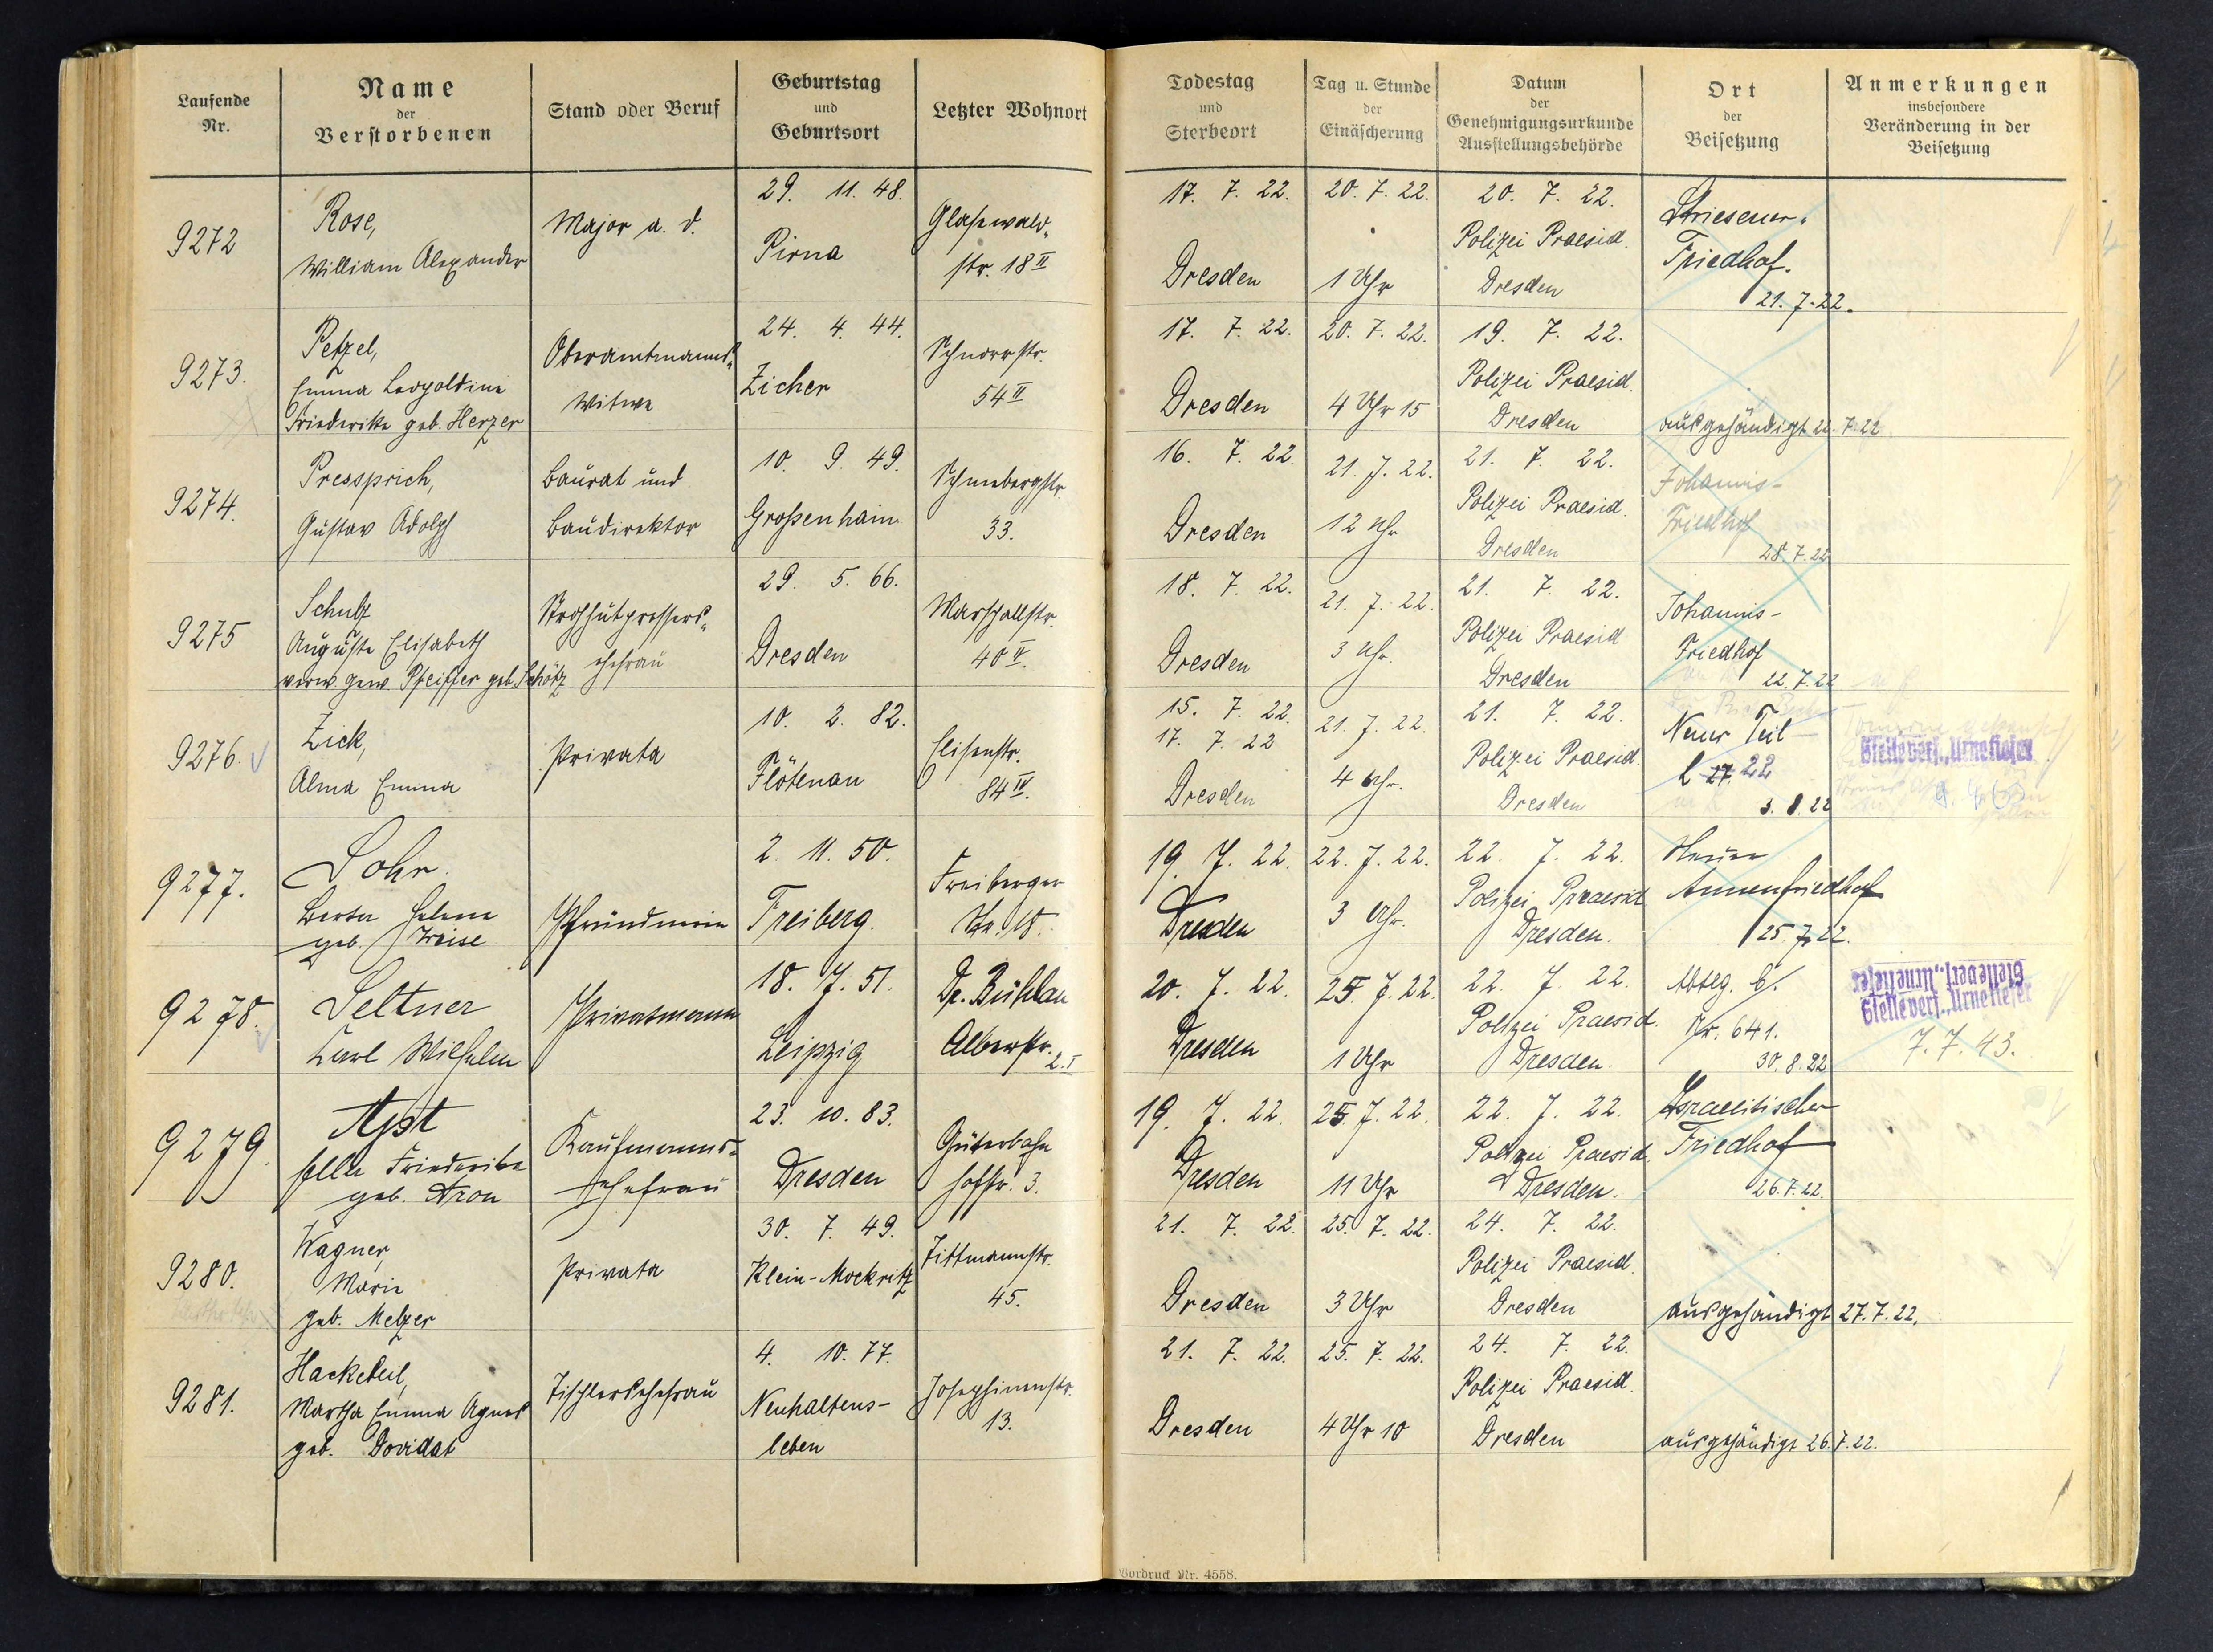 Laufende Nr.
Name der Verstorbenen
Stand oder Beruf
Geburtstag und Geburtsort
Letzter Wohnort
Todestag und Sterbeort
Tag u. Stunde der Einäscherung
Datum der Genehmigungsurkunde Ausstellungsbehörde
Ort der Beisetzung
Anmerkungen insbesondere Veränderung in der Beisetzung
9272
Rose,
William Alexander
Major a. d.
29. 11. 48.
Pirna
Glasewald-
str. 18 II
17. 7. 22.
Dresden
20. 7. 22.
1 Uhr
20. 7. 22.
Polizei Praesid.
Dresden
Striesener-
Friedhof.
21. 7. 22.
9273.
Petzel,
Emma Leopoldine
Friederike geb. Herzer
Oberamtmanns-
Witwe
24. 4. 44.
Zicher
Schnorrstr.
54 II
17. 7. 22.
Dresden
20. 7. 22.
4 Uhr 15
19. 7. 22.
Polizei Praesid.
Dresden
ausgehändigt 22. 7. 22
9274.
Pressprich,
Gustav Adolph
Baurat und
Baudirektor
10. 9. 49.
Großenhain
Schneebergstr.
33.
16. 7. 22.
Dresden
21. 7. 22.
12 Uhr
21. 7. 22.
Polizei Praesid.
Dresden
Johannis-
Friedhof
28. 7. 22
9275
Schulz
Auguste Elisabeth
verw. gew. Pfeiffer geb. Schötz
Strohhutpressers-
ehefrau
29. 5. 66.
Dresden
Marschallstr.
40 II.
18. 7. 22.
Dresden
21. 7. 22.
3 Uhr.
21. 7. 22.
Polizei Praesid
Dresden
Johannis-
Friedhof
22. 7. 22
9276.
Zick,
Alma Emma
Privata
10. 2. 82.
Flötenau
Elisenstr.
84 IV.
15. 7. 22.
17. 7. 22
Dresden
21. 7. 22.
4 Uhr.
21. 7. 22.
Polizei Praesid.
Dresden
Neuer Teil
L 27. 22
3. 8. 22
9277.
Sohr.
Berta Helene
geb. Weise
Pfründnerin
2. 11. 50.
Freiberg.
Freiberger
Str. 18.
19. 7. 22.
Dresden
22. 7. 22.
3 Uhr.
22. 7. 22.
Polizei Praesid
Dresden.
Neuer
Annenfriedhof
25. 7. 22.
9278.
Seltner
Karl Wilhelm
Privatmann
18. 7. 51.
Leipzig
Dr. Bühlau
Albertstr. 2. I
20. 7. 22.
Dresden
25. 7. 22.
1 Uhr
22. 7. 22.
Polizei Praesid.
Dresden
Abtlg. b/.
Nr. 641.
30. 8. 22
7. 7. 43.
9279.
Apt
Ella Friederike
geb. Aron
Kaufmanns-
ehefrau
23. 10. 83.
Dresden
Güterbahn
hofstr. 3.
19. 7. 22.
Dresden
25. 7. 22.
11 Uhr
22. 7. 22.
Polizei Praesid.
Dresden.
Israelitischer
Friedhof
26. 7. 22.
9280.
Wagner,
Marie
geb. Melzer
Privata
30. 7. 49.
Klein-Mockritz
Tittmannstr.
45.
21. 7. 22.
Dresden
25. 7. 22.
3 Uhr
24. 7. 22.
Polizei Praesid.
Dresden
ausgehändigt 27. 7. 22.
9281.
Hacketeil,
Martha Emma Agnes
geb. Dovidat
Tischlersehefrau
4. 10. 77.
Neuhaltens-
leben
Josephinenstr.
13.
21. 7. 22.
Dresden
25. 7. 22.
4 Uhr 10
24. 7. 22.
Polizei Praesid.
Dresden
ausgehändigt 26. 7. 22.
Vordruck Nr. 4558.